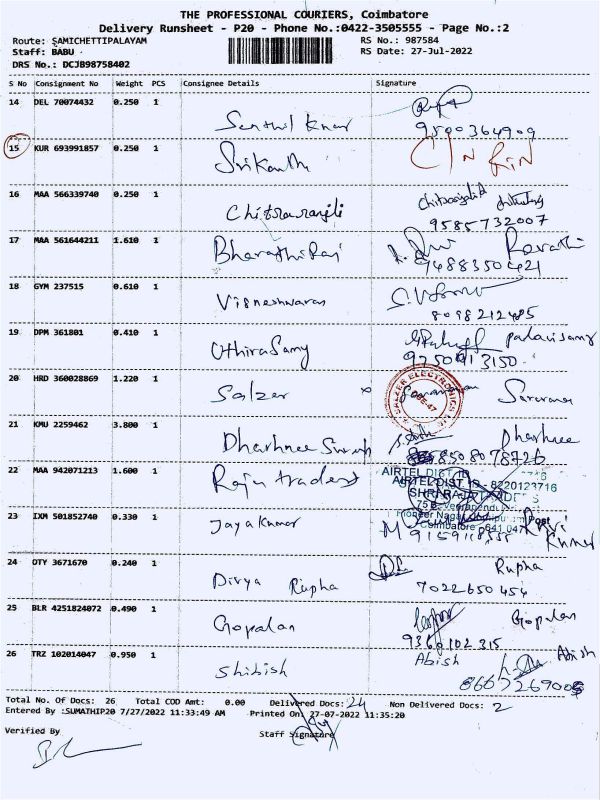 THE PROFESSIONAL COURIERS, Coimbatore
Delivery Runsheet - P20 - Phone No.:0422-3505555 - Page No.:2
Route: SAMICHETTIPALAYAM RS No.: 987584
Staff: BABU RS Date: 27-Jul-2022
DRS No.: DCJB98758402
S No Consignment No Weight PCS Consignee Details Signature
14 DEL 70074432 0.250 1
Senthil Kumar 9500364909
15 KUR 693991857 0.250 1
Srikanth
16 MAA 566339740 0.250 1
Chitraranjili
9585732007
17 MAA 561644211 1.610 1
Bharathi Raj Revathi
9488350421
18 GYM 237515 0.610 1
Visneshwaran
8098212485
19 DPM 361801 0.410 1
Uthirasamy palanisamy
20 HRD 360028869 1.220 1
Salzer x SALZER ELECTRONICS Saravanan
21 KMU 2259462 3.800 1
Dharhnee
22 MAA 942071213 1.600 1
Raju traders
AIRTEL DIST ID - 8220123716
23 IXM 501852740 0.330 1
Jayakumar Ravi
Kumar
24 OTY 3671670 0.240 1
Divya Rupha Rupha
7022650454
25 BLR 4251824072 0.490 1
Gopalan Gopalan
9360102315
26 TRZ 102014047 0.950 1
Shibish Abish Abish
Total No. Of Docs: 26 Total COD Amt: 0.00 Delivered Docs: 24 Non Delivered Docs: 2
Entered By :SUMATHIP20 7/27/2022 11:33:49 AM Printed On: 27-07-2022 11:35:20
Verified By Staff Signature